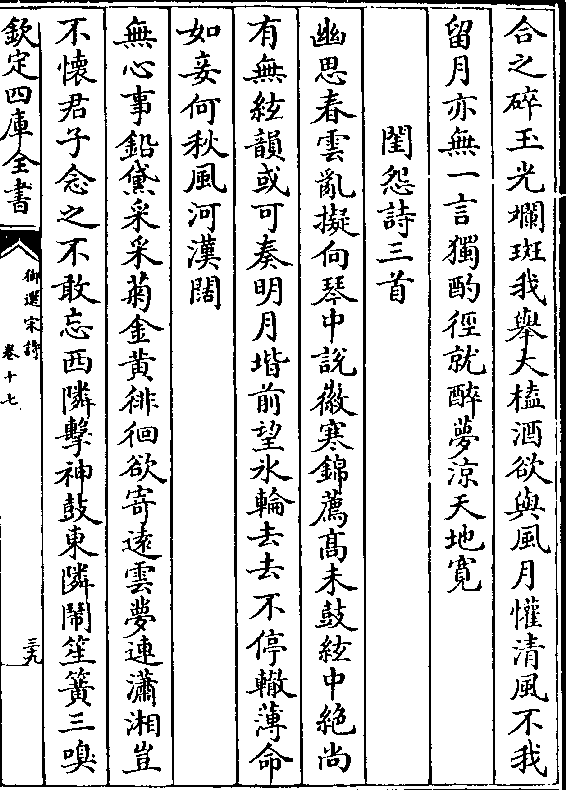 合之碎玉光斕斑我舉大榼酒欲與風月懽清風不我
留月亦無一言獨酌徑就醉夢涼天地寬
閨怨詩三首
幽思春雲亂擬向琴中說徽寒錦薦髙未鼓絃中絶尚
有無絃韻或可奏明月堦前望氷輪去去不停轍薄命
如妾何秋風河漢闊
無心事鉛黛采采菊金黄徘徊欲寄逺雲夢連瀟湘豈
不懷君子念之不敢忘西隣擊神鼓東隣鬧笙簧三嗅
欽定四庫全書
御選宋詩
卷十七
三九